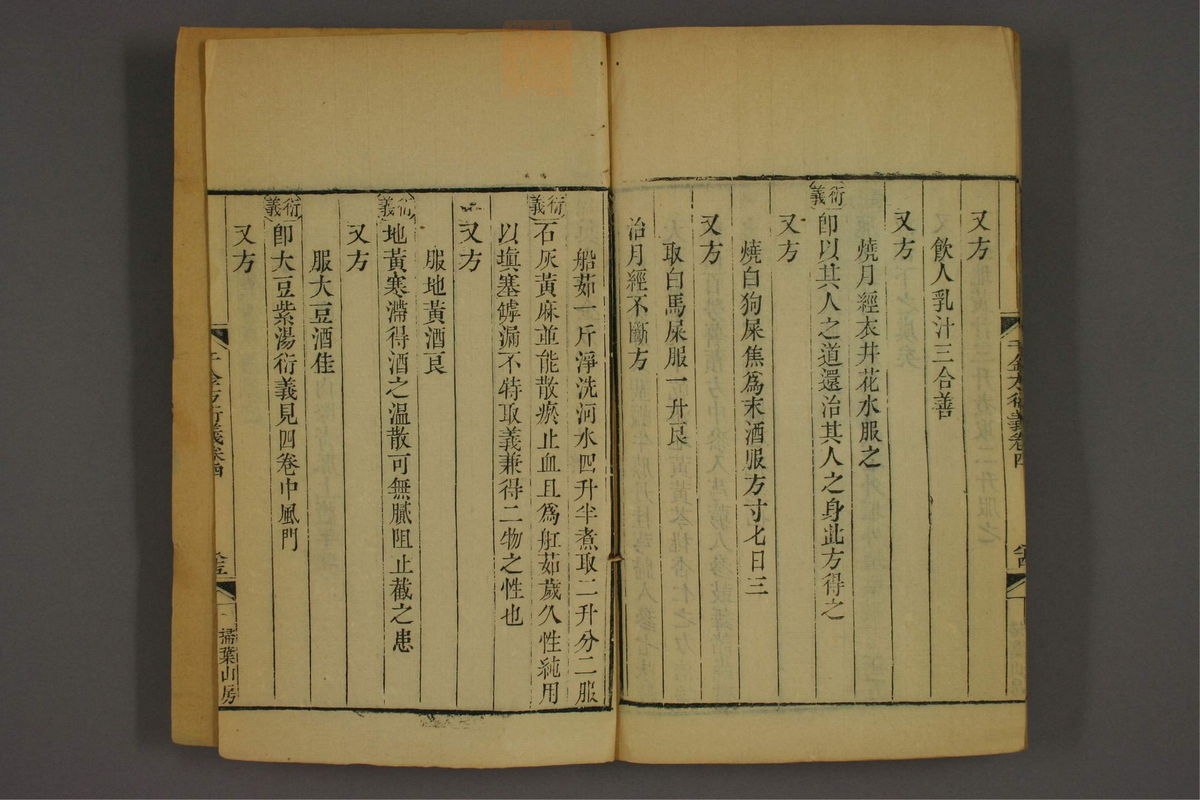 又方
飲人乳汁三合善
又方
燒月經衣井花水服之
衍義
卽以其人之道還治其人之身此方得之
又方
燒白狗屎焦爲末酒服方寸匕日三
又方
取白馬尿服一升良
治月經不斷方
船茹一斤淨洗河水四升半煮取二升分二服
衍義
石灰黃麻並能散瘀止血且爲舡茹歲久性純用
以塡塞罅漏不特取義兼得二物之性也
又方
服地黃酒良
衍義
地黃寒滯得酒之温散可無膩阻止截之患
又方
服大豆酒佳
衍義
卽大豆紫湯衍義見四卷中風門
又方
千金方衍義卷四
掃葉山房